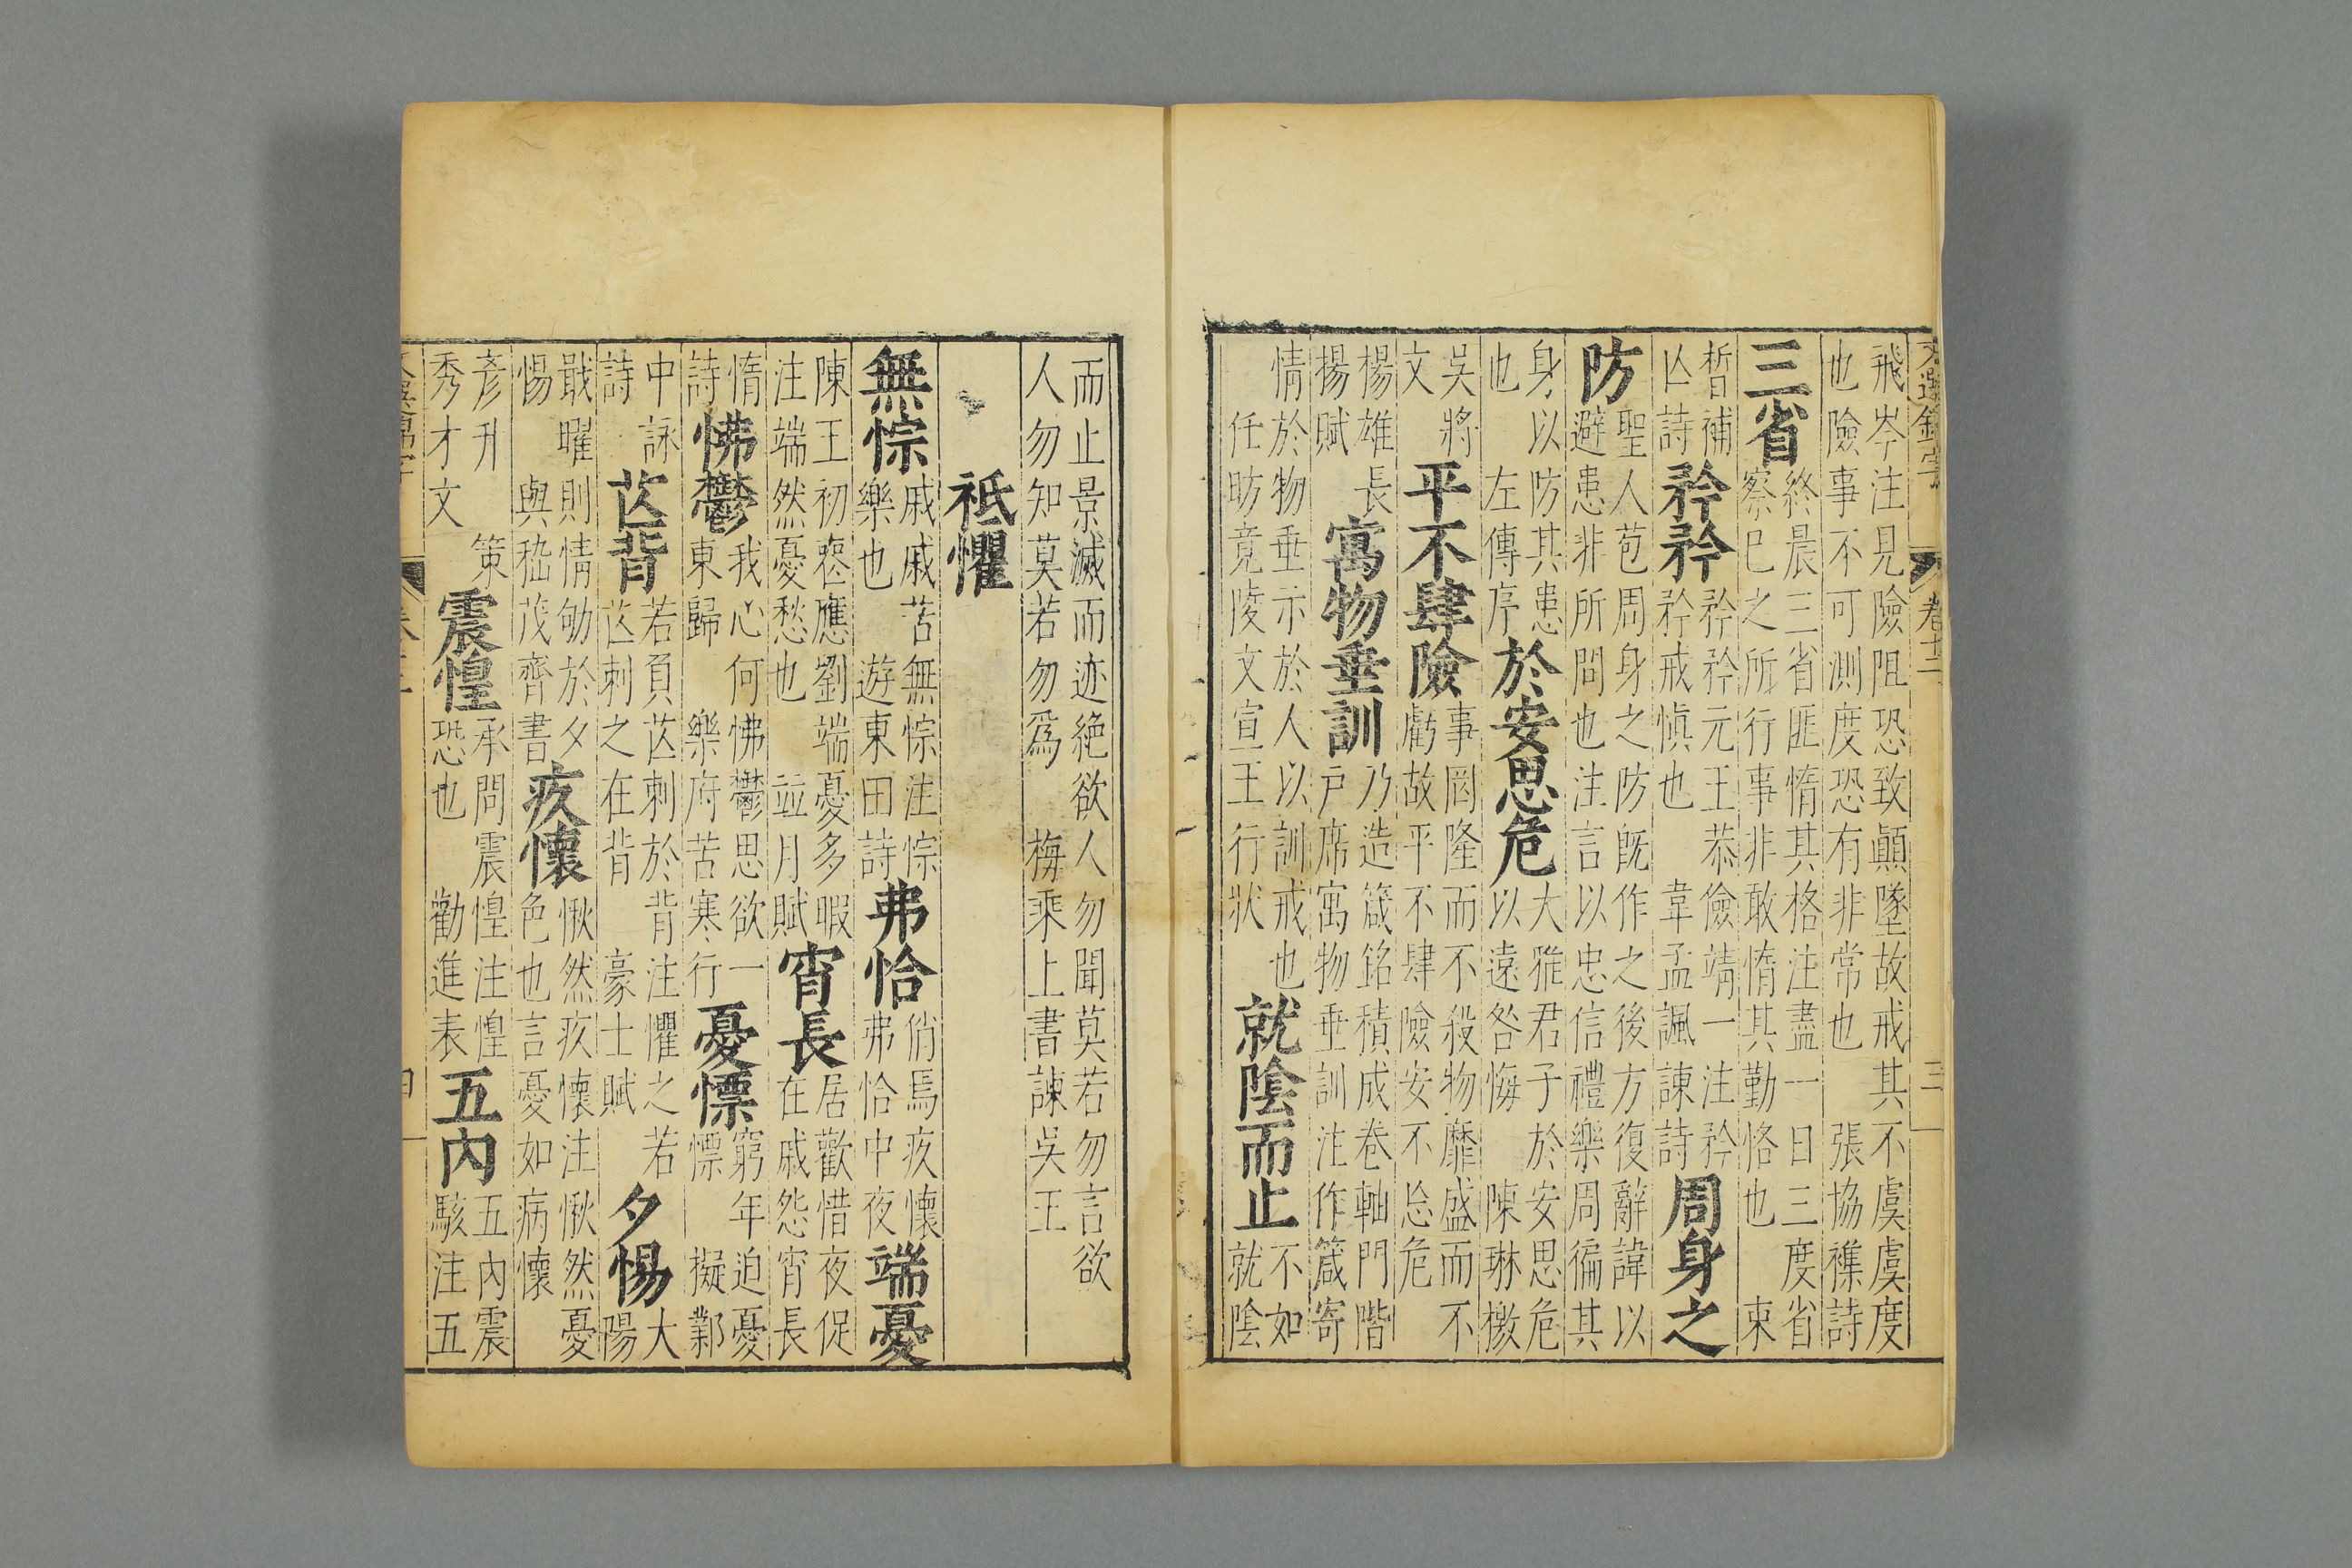 文選錦字 卷十二 三
飛岑注見險阻恐致顚墜故戒其不虞虞度
也險事不可測度恐有非常也 張協襍詩
三省 終晨三省匪惰其格注盡一日三度省
察巳之所行事非敢惰其勤恪也 束
晳補
亾詩 矜矜 矜矜元王恭儉靖一注矜
矜戒愼也 韋孟諷諫詩 周身之
防 聖人苞周身之防旣作之後方復辭諱以
避患非所問也注言以忠信禮樂周徧其
身以防其患
也 左傳序 於安思危 大雅君子於安思危
以遠咎悔 陳琳檄
吳將
文 平不肆險 事罔隆而不殺物靡盛而不
虧故平不肆險安不忘危
楊雄長
揚賦 寓物垂訓 乃造箴銘積成卷軸門階
戸席寓物垂訓注作箴寄
情於物垂示於人以訓戒也
任昉竟陵文宣王行狀 就陰而止 不如
就陰
而止景滅而迹絶欲人勿聞莫若勿言欲
人勿知莫若勿爲 梅乘上書諫吳王
祗懼
無悰 戚戚苦無悰注悰
樂也 遊東田詩 弗恰 俏焉疚懷
弗恰中夜 端憂
陳王初喪應劉端憂多暇
注端然憂愁也 竝月賦 宵長 居歡惜夜促
在戚怨宵長
惰
詩 怫鬱 我心何怫鬱思欲一
東歸 樂府苦寒行 憂慓 窮年迫憂
慓 擬鄴
中詠
詩 芒背 若負芒刺於背注懼之若
芒刺之在背 豪士賦 夕惕 大
陽
戢曜則情劬於夕
惕 與嵇茂齊書 疚懷 愀然疚懷注愀然憂
色也言憂如病懷
彥升
秀才文 策 震惶 承問震惶注惶
恐也 勸進表 五內 五內震
駭注五